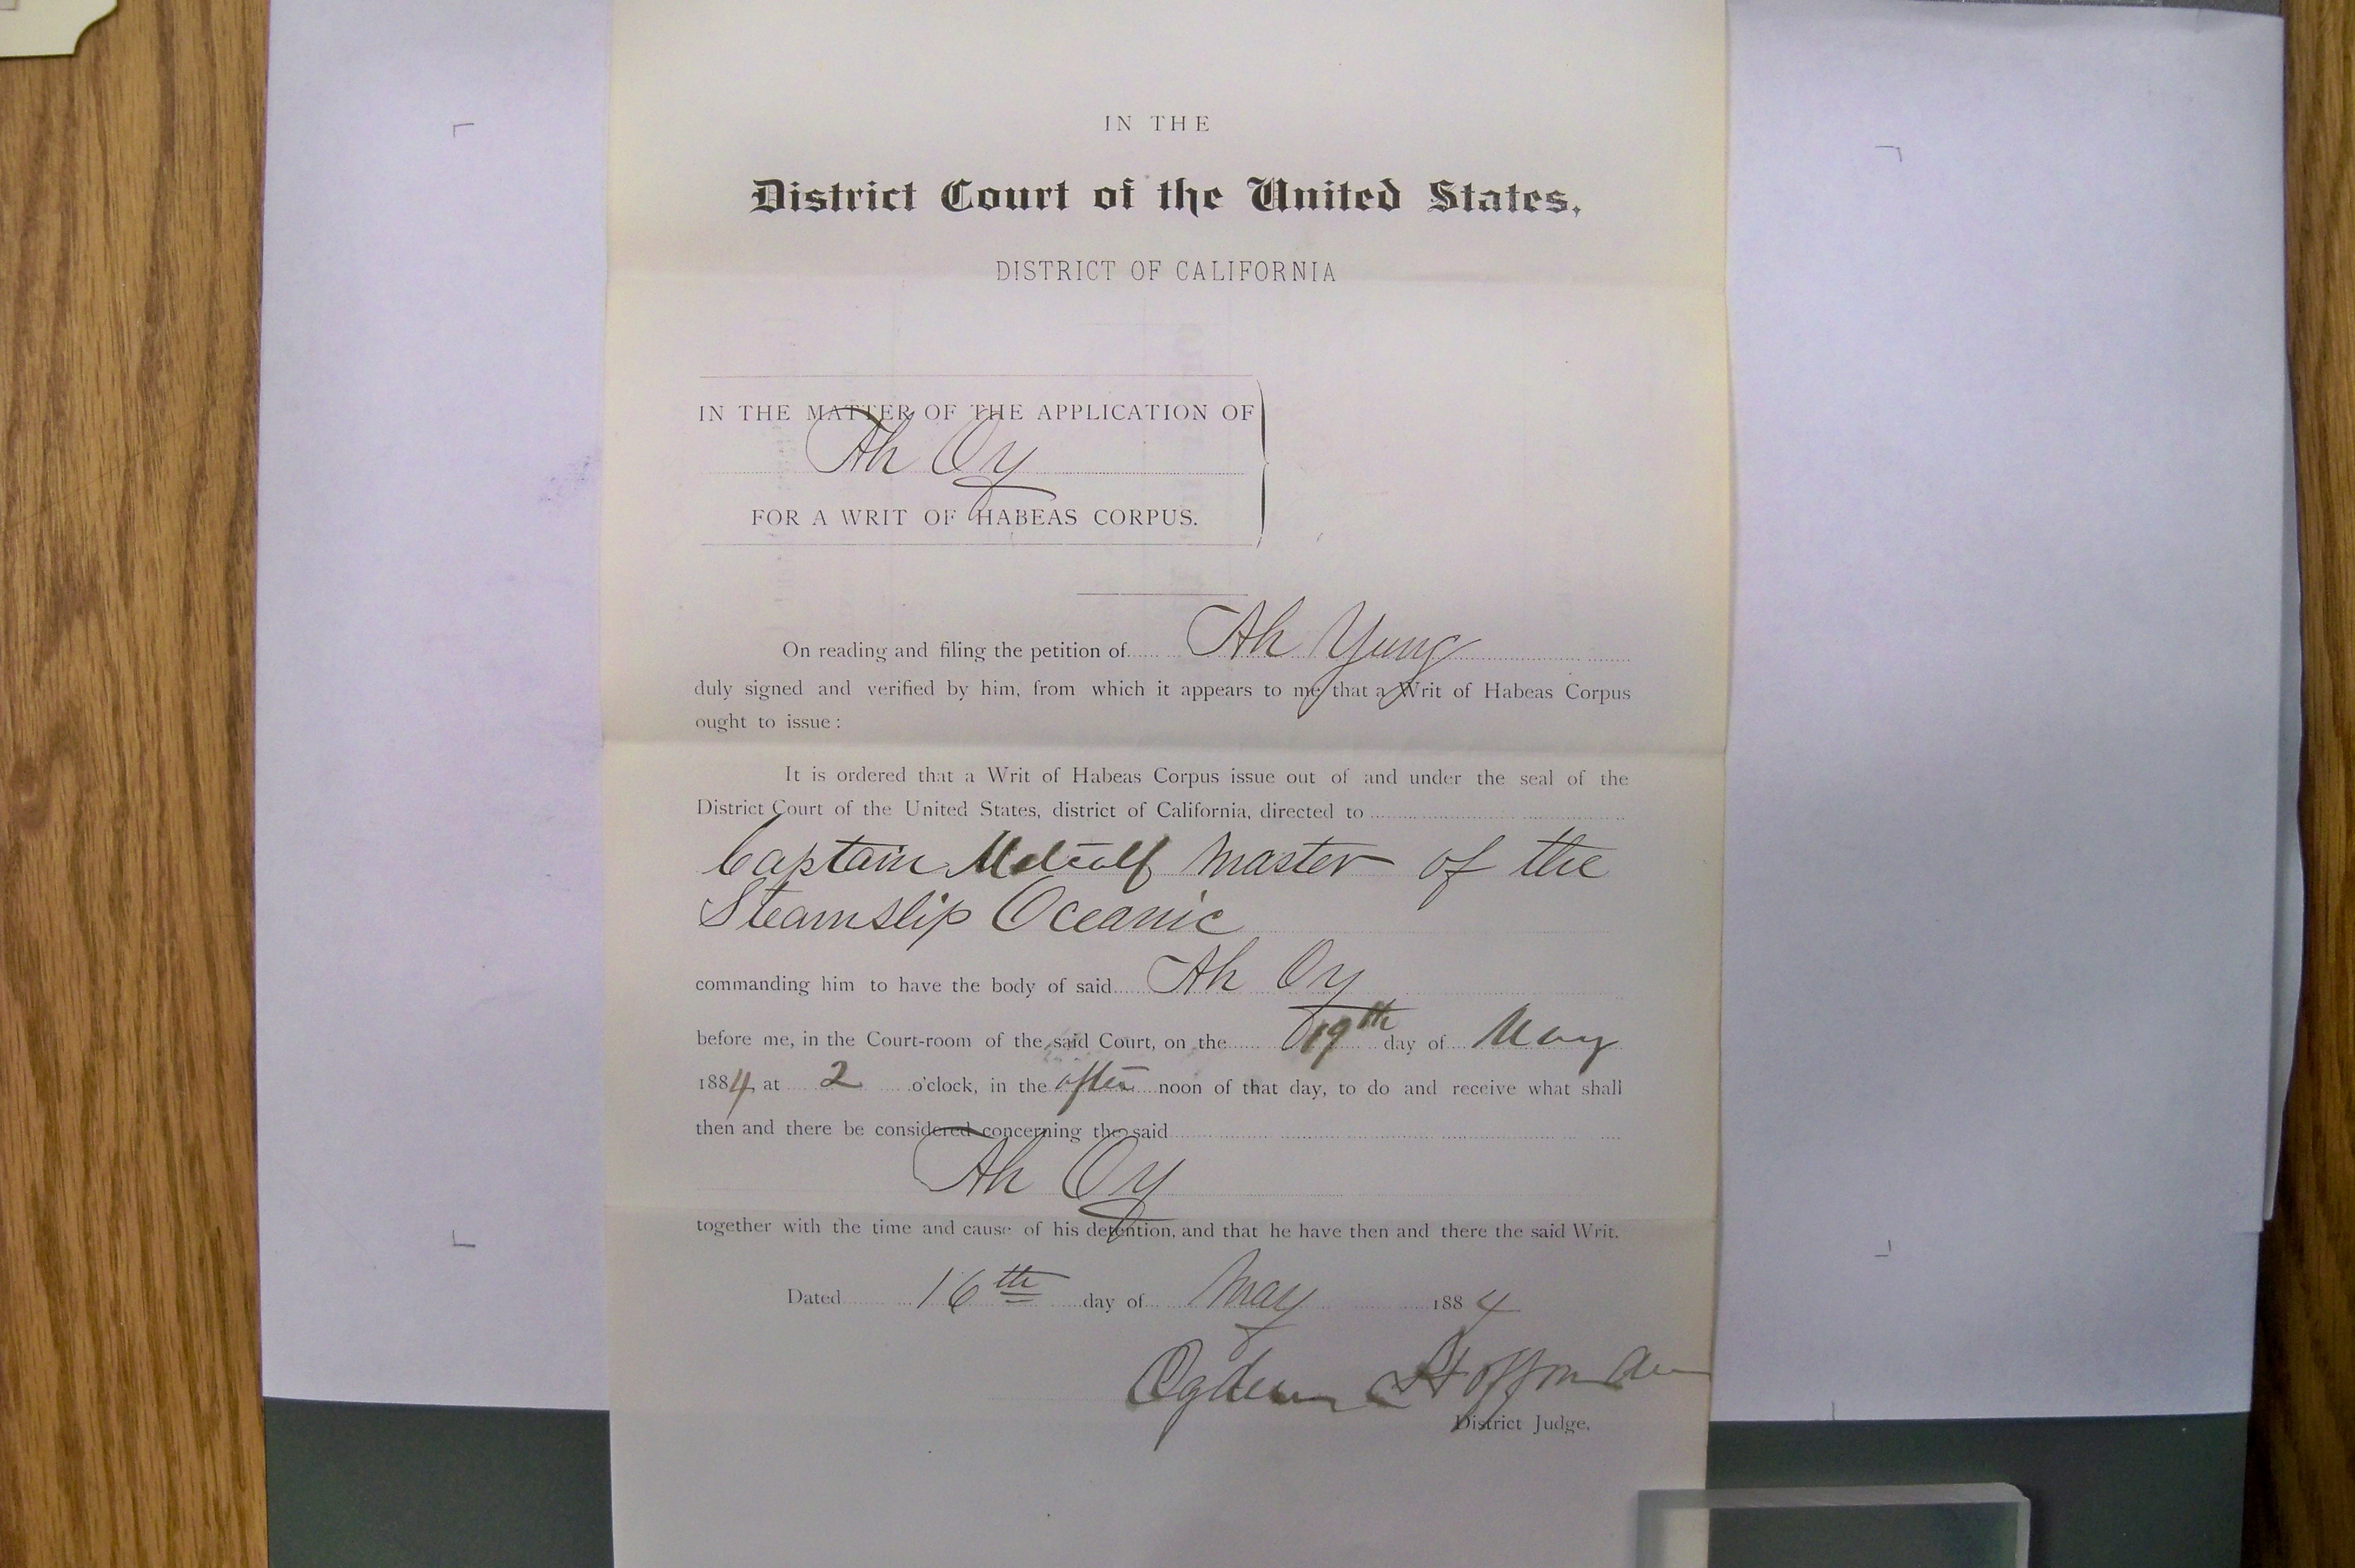 IN THE
District Court of the United States,
DISTRICT OF CALIFORNIA
IN THE MATTER OF THE APPLICATION OF
Ah Oy
FOR A WRIT OF HABEAS CORPUS.
On reading and filing the petition of Ah Yung
duly signed and verified by him, from which it appears to me that a Writ of Habeas Corpus
ought to issue:
It is ordered that a Writ of Habeas Corpus issue out of and under the seal of the
District Court of the United States, district of California, directed to
Captain Metcalf Master of the
Steamship Oceanic
commanding him to have the body of said Ah Oy
before me, in the Court-room of the said Court, on the 19th day of May
1884, at 2 o'clock, in the after noon of that day, to do and receive what shall
then and there be considered concerning the said
Ah Oy
together with the time and cause of his detention, and that he have then and there the said Writ.
Dated 16th day of May 1884
Ogden Hoffman
District Judge.